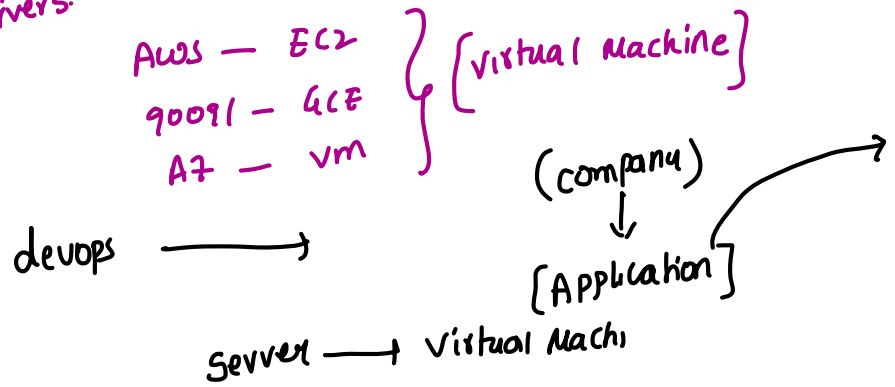 ivers.
AWS — EC2
google — GCE
AZ — VM
[virtual Machine]
(company)
devops →
[Application]
server → virtual Machi